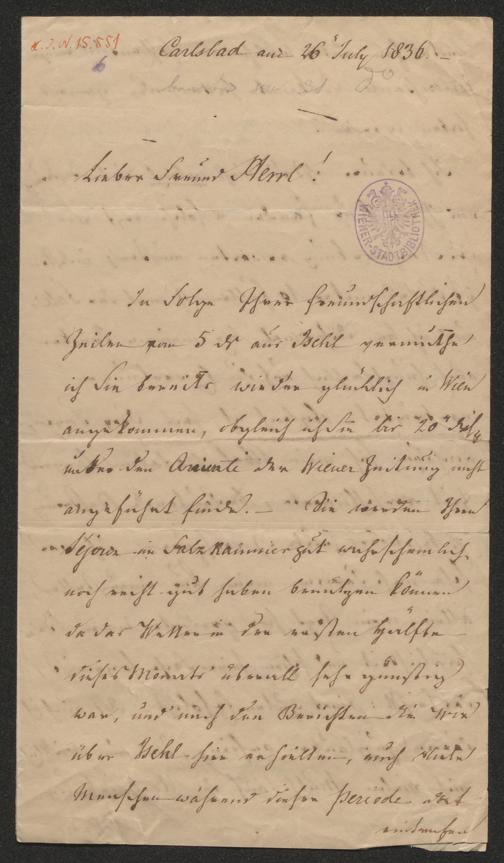 I. N. 15.551
Carlsbad am 26 July 1836.
Lieber Freund
WIENER-STADTBIBLIOTHEK
In Folge Ihrer freundschaftlichen
Zeilen vom 5 ds aus Ischl vermuthe
ich Sie bereits wieder glücklich in Wien
angekommen, obgleich ich Sie bis 20
unter den der Wiener Zeitung nicht
angeführt finde. — Sie werden Ihren
Séjour im Salzkammergut wahrscheinlich
noch recht gut haben benutzen können
da das Wetter in der ersten Hälfte
dieses Monats überall sehr günstig
war, und nach den Berichten die wir
über Ischl hier erhielten, auch viele
Menschen während dieser Periode dort
eintrafen